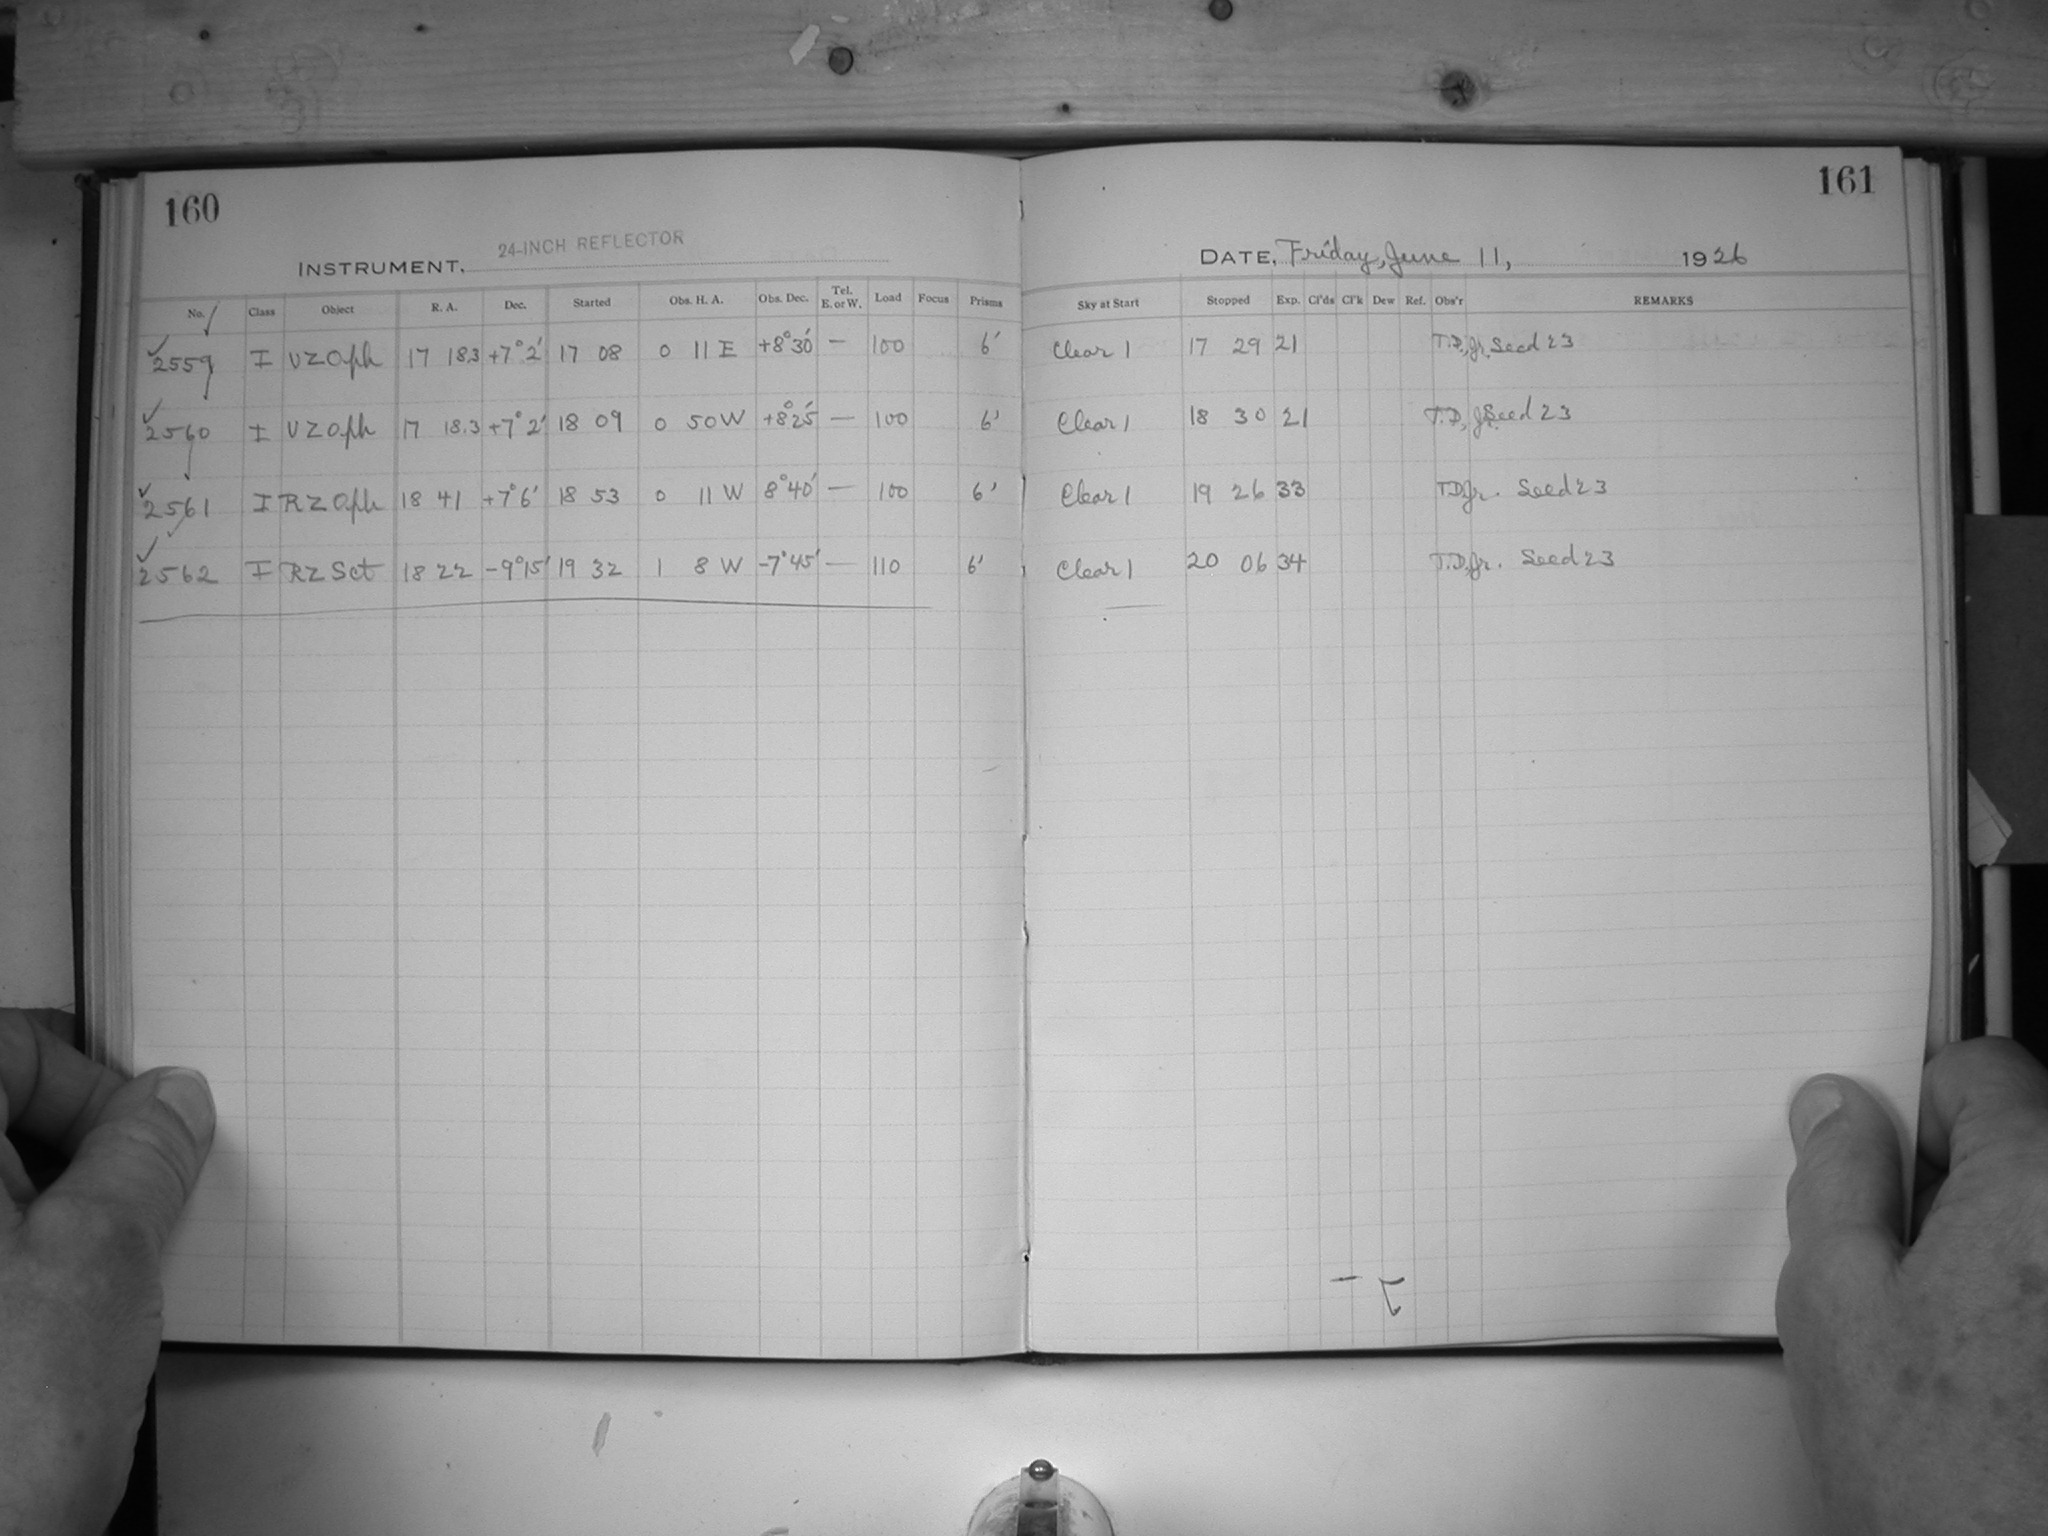 160
161
INSTRUMENT. 24-INCH REFLECTOR
DATE, Friday, June 11, 1926
No. Class Object R. A. Dec. Started Obs. H. A. Obs. Dec. Tel. E. or W. Load Focus Prisms Sky at Start Stopped Exp. Cl'ds Cl'k Dew Ref. Obs'r REMARKS
2559 I UZ Oph 17 18.3 +7° 2' 17 08 0 11 E +8° 30' — 100 6' Clear 1 17 29 21 T.D., Jr. Seed 23
2560 I UZ Oph 17 18.3 +7° 2' 18 09 0 50 W +8° 25' — 100 6' Clear 1 18 30 21 T.D., Jr. Seed 23
2561 I RZ Oph 18 41 +7° 6' 18 53 0 11 W 8° 40' — 100 6' Clear 1 19 26 33 T.D. Jr. Seed 23
2562 I RZ Sct 18 22 -9° 15' 19 32 1 8 W -7° 45' — 110 6' Clear 1 20 06 34 T.D. Jr. Seed 23